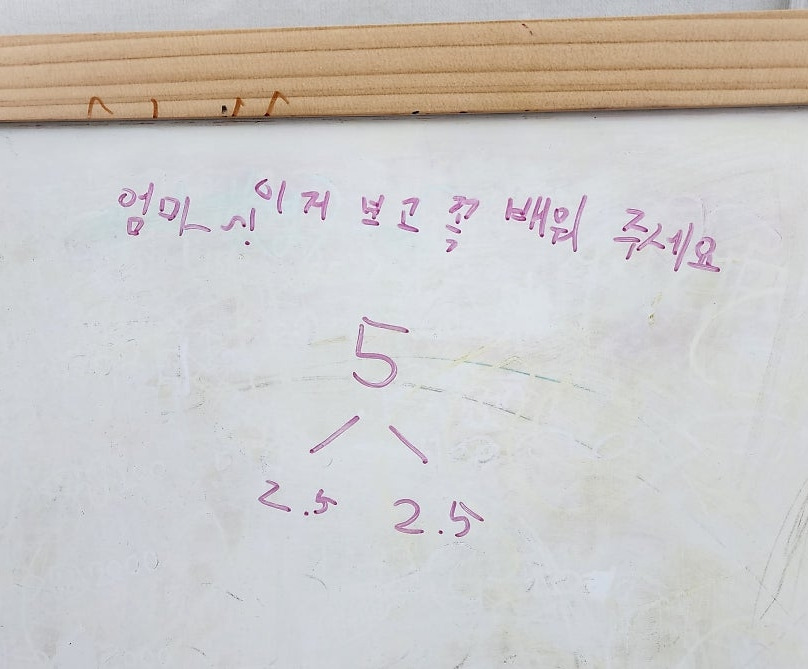 엄마 이거 보고 꼭 배워 주세요
5
2.5 2.5